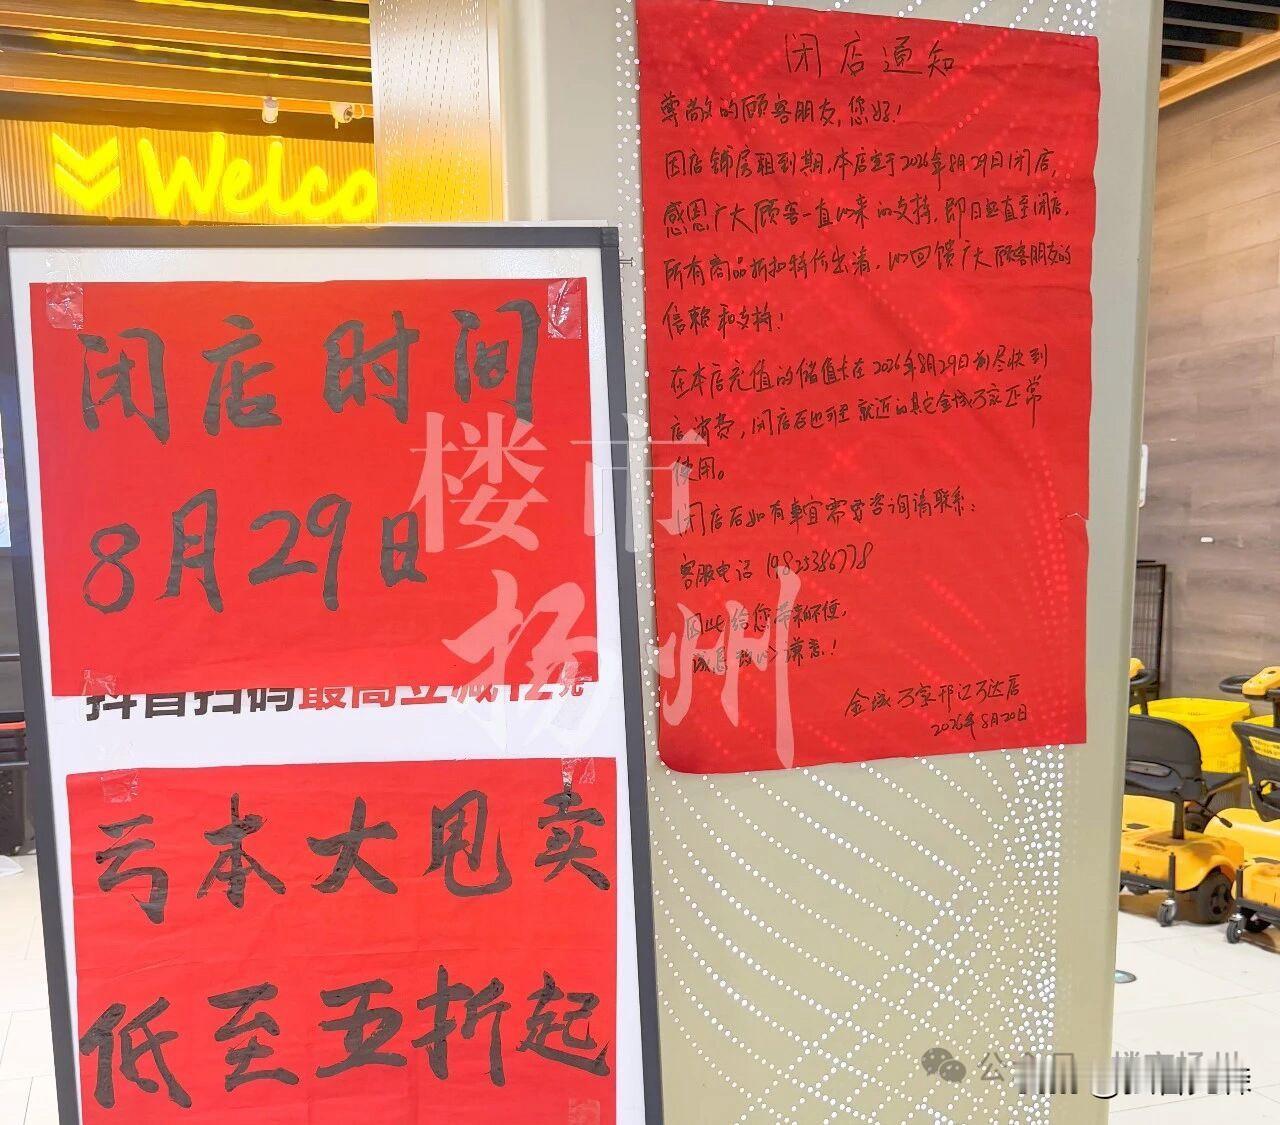 Welco
闭店时间
8月29日
抖音扫码最高立减
亏本大甩卖
低至五折起
闭店通知
尊敬的顾客朋友,您好!
因店铺房租到期,本店定于2026年8月29日闭店,
感恩广大顾客一直以来的支持,即日起直至闭店,
所有商品折扣特价出清,以回馈广大顾客朋友的
信赖和支持!
在本店充值的储值卡在2026年8月29日前尽快到
店消费,闭店后也可至就近的其它金域万家正常
使用。
闭店后如有事宜需要咨询请联系:
客服电话
因此给您带来的不便,
诚恳致以谦意!
金域万家邗江万达店
2026年8月20日
楼市
扬州